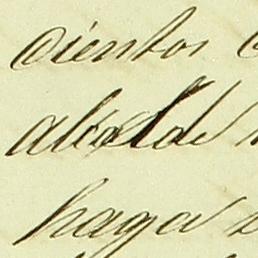 cientos
alcalde
haga